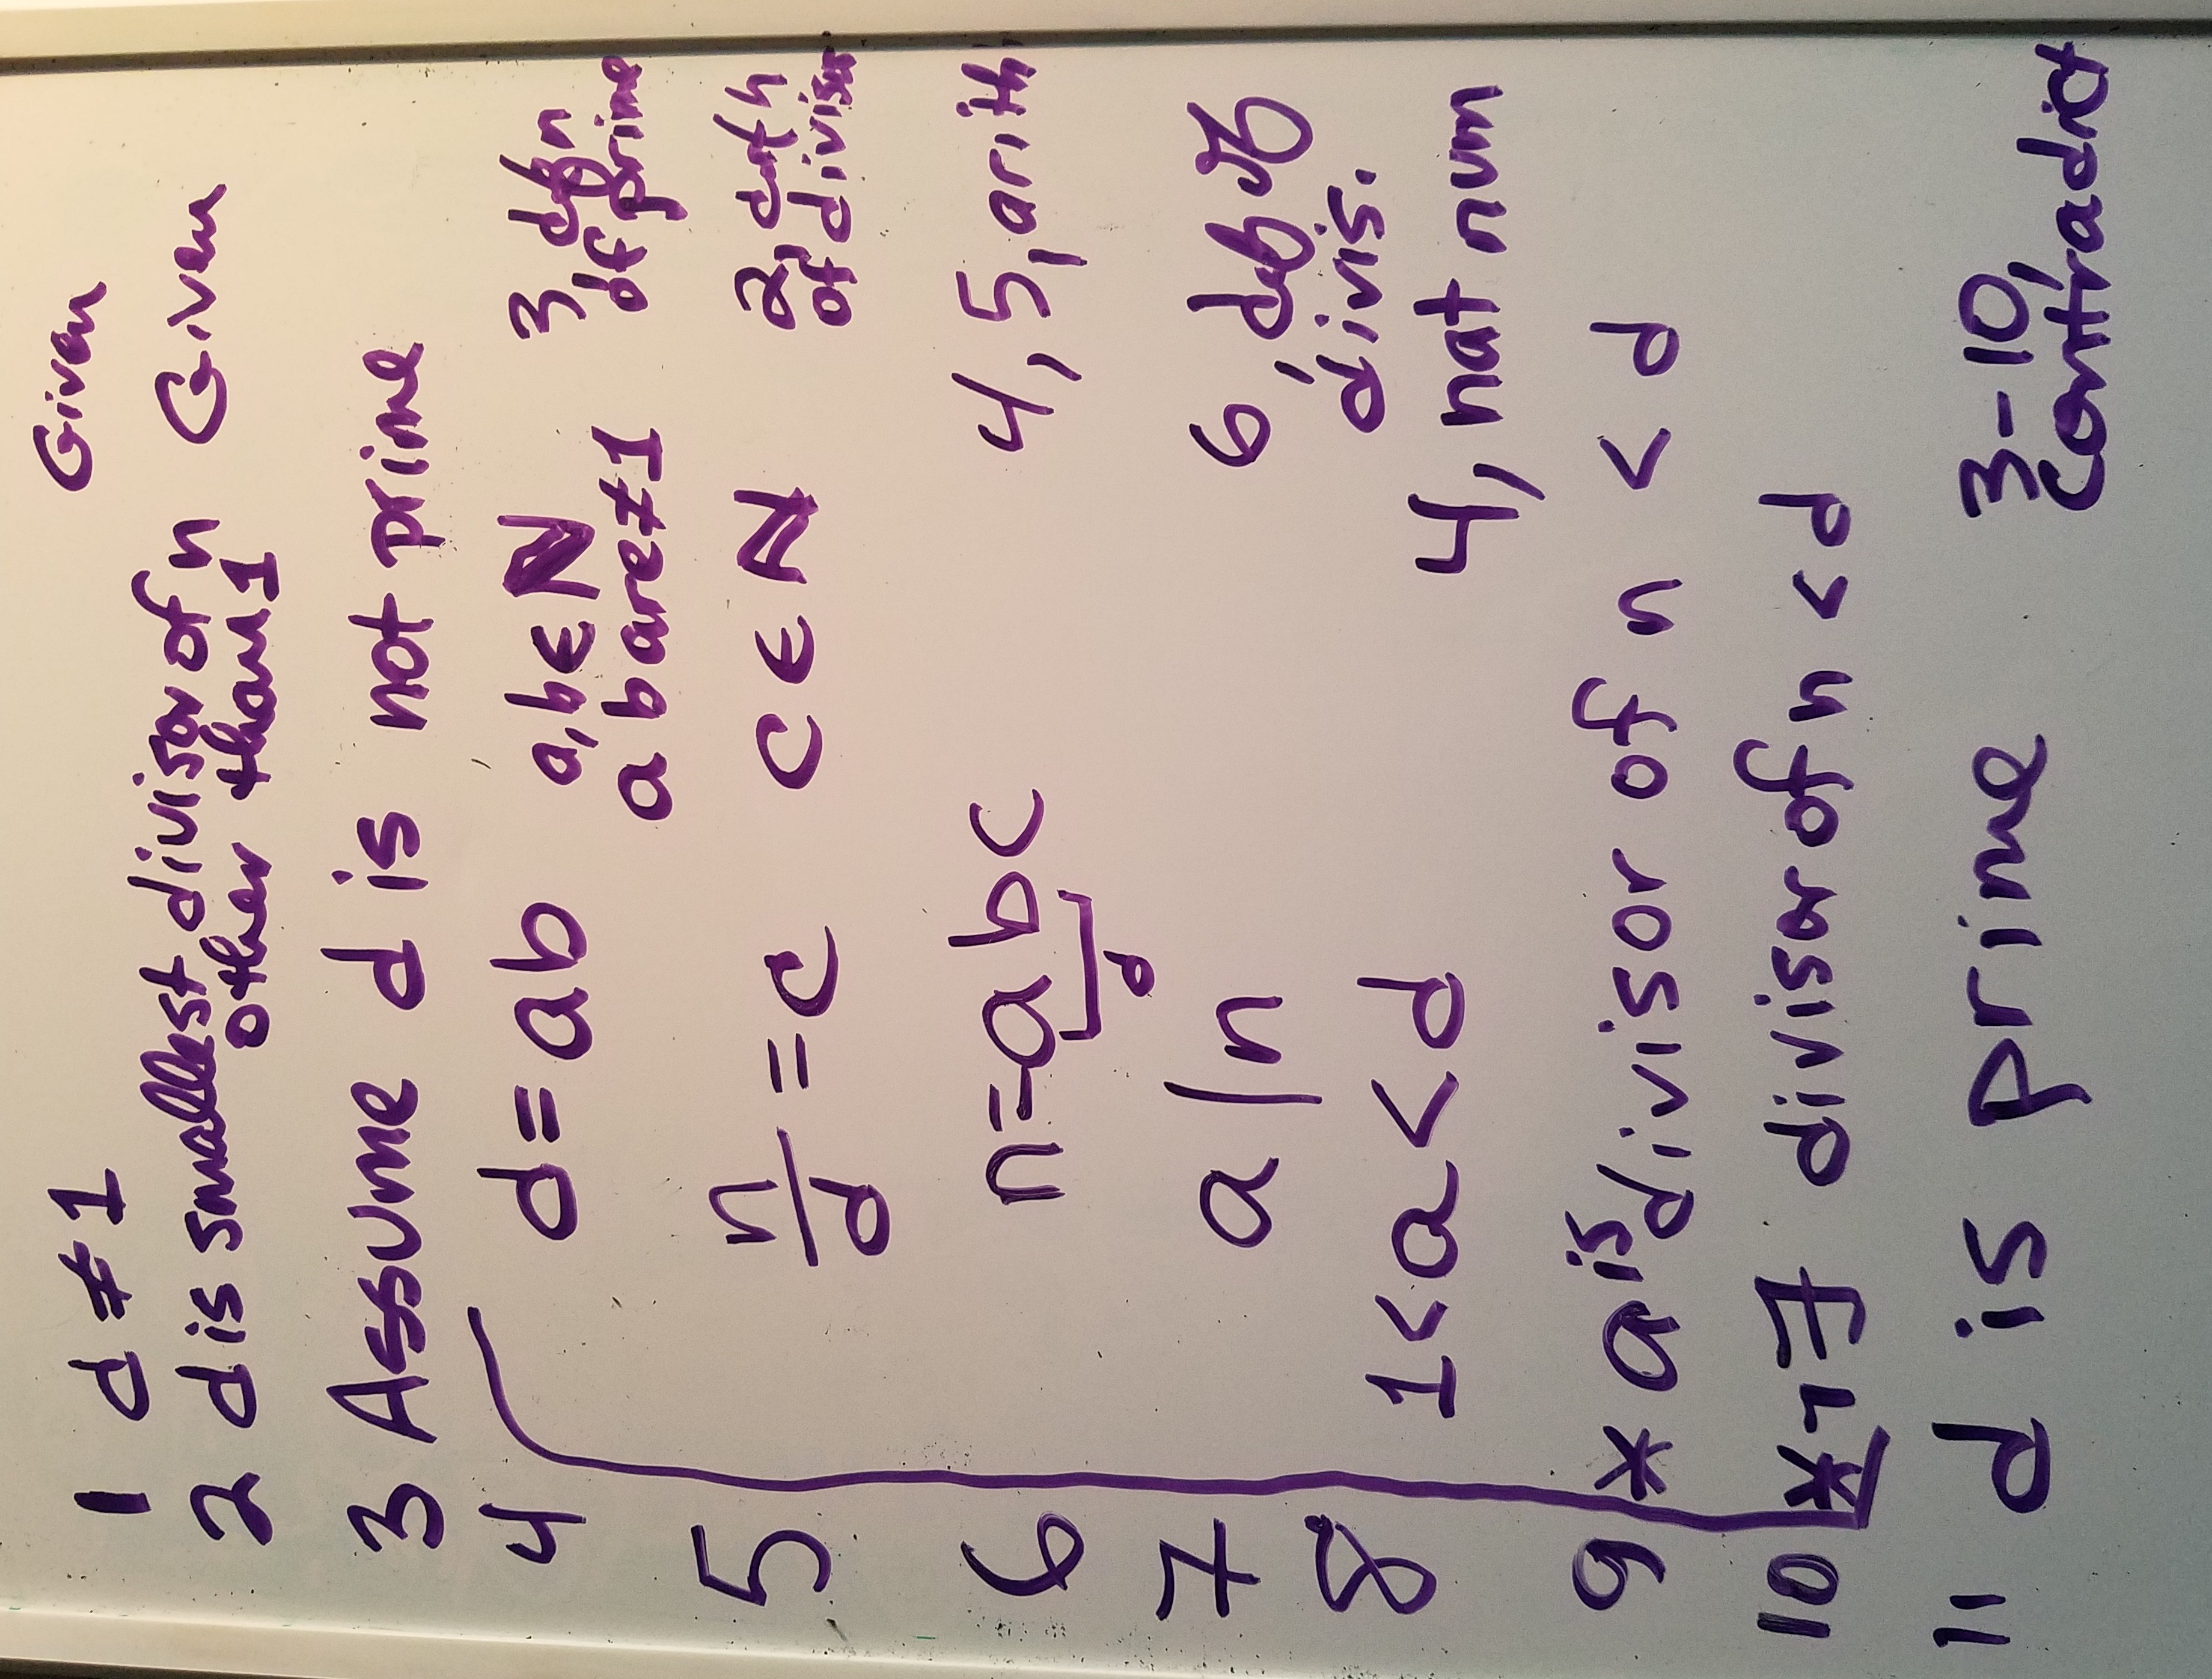 1 d ≠ 1 Given
2 d is smallest divisor of n Given
other than 1
3 Assume d is not prime
4 d = ab a, b ∈ N 3 dfn
a b are ≠ 1 of prime
5 n/d = c c ∈ N 2,
of divisor
6 n = abc 4, 5, arith
d
7 a | n 6, of
divis.
8 1 < a < d 4, nat num
9 * a is divisor of n < d
10 * ¬∃ divisor of n < d
11 d is prime 3-10,
contradict